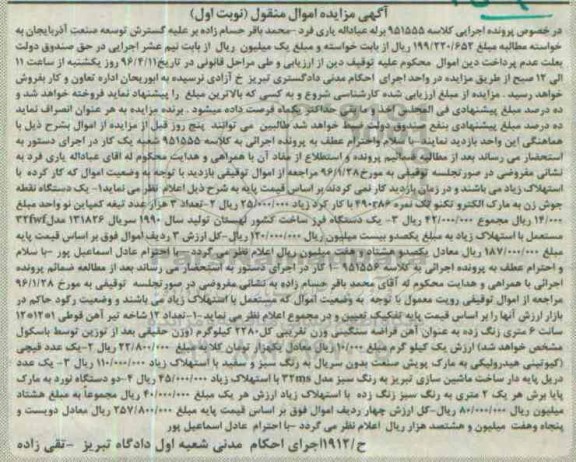 آگهی مزایده اموال منقول (نوبت اول)
در خصوص پرونده اجرایی کلاسه ۹۵۱۵۵۵ برله عبداله یاری فرد -محمد باقر حسام زاده بر علیه گسترش توسعه صنعت آذربایجان به
خواسته مطالبه مبلغ ۱۹۹/۲۲۰/۶۵۲ ریال از بابت خواسته و مبلغ یک میلیون ریال از بابت نیم عشر اجرایی در حق صندوق دولت
بعلت عدم پرداخت دین اموال محکوم علیه توقیف دین از ارزیابی و طی مراحل قانونی در تاریخ ۹۶/۴/۱۱ روز یکشنبه از ساعت ۱۱
الی ۱۲ صبح از طریق مزایده در واحد اجرای احکام مدنی دادگستری تبریز خ آزادی نرسیده به ابوریحان اداره تعاون و کار بفروش
خواهد رسید . مزایده از مبلغ ارزیابی شده کارشناسی شروع و به کسی که بالاترین مبلغ را پیشنهاد نماید فروخته خواهد شد و
ده درصد مبلغ پیشنهادی فی المجلس اخذ و مابقی حداکثر یکماه فرصت داده میشود . برنده مزایده به هر عنوان انصراف نماید
ده درصد مبلغ پیشنهادی بنفع صندوق دولت ضبط خواهد شد طالبین می توانند پنج روز قبل از مزایده از اموال بشرح ذیل با
هماهنگی این واحد بازدید نمایند با سلام واحترام عطف به پرونده اجرائی به کلاسه ۹۵۱۵۵۵ شعبه یک کار در اجرای دستور به
استحضار می رساند بعد از مطالعه ضمائم پرونده و استطلاع از مفاد آن با همراهی و هدایت محکوم له آقای عبداله یاری فرد به
نشانی مفروضی در صورتجلسه توقیفی به مورخ ۹۶/۱/۲۸ مراجعه از اموال توقیفی بازدید با توجه به وضعیت اموال که کار کرده با
استهلاک زیاد می باشند و در زمان بازدید کار نمی کردند بر اساس قیمت پایه به شرح ذیل اعلام نظر می نماید۱- یک دستگاه نقطه
جوش زن به مارک الکترو تکنو تک نمره ۴۹۰۳۸۶ با کار کرد زیاد ۲۵/۰۰۰/۰۰۰ ریال ۲-تعداد ۳ هزار عدد تیغه کمپاین نو واحد مبلغ
۱۴/۰۰۰ ریال مجموع ۴۲/۰۰۰/۰۰۰ ریال ۳- یک دستگاه فرز ساخت کشور لهستان تولید سال ۱۹۹۰ سریال ۱۳۱۸۲۶ مدل۳۲fwf
مستعمل با استهلاک زیاد به مبلغ یکصدو بیست میلیون ریال ۱۲۰/۰۰۰/۰۰۰ ریال-کل ارزش ۳ ردیف اموال فوق بر اساس قیمت پایه
۱۸۷/۰۰۰/۰۰۰ ریال معادل یکصدو هشتادو هفت میلیون ریال اعلام نظر می گردد . با احترام عادل اسماعیل پور -با سلام
و احترام عطف به پرونده اجرائی به کلاسه ۹۵۱۵۵۶ -۱ کار در اجرای دستور به استحضار می رساند بعد از مطالعه ضمائم پرونده
اجرائی با همراهی و هدایت محکوم له آقای محمد باقر حسام زاده به نشانی مفروضی در صورتجلسه توقیفی به مورخ ۹۶/۱/۲۸
مراجعه از اموال توقیفی رویت معمول با توجه به وضعیت اموال که مستعمل با استهلاک زیاد می باشند و وضعیت رکود حاکم در
بازار ارزش آنها را بر اساس قیمت پایه تفکیک تعیین و در مجموع اعلام نظر می نماید -۱-تعداد ۱۲ شاخه تیر آهن قوطی
سانت ۶ متری زنگ زده به عنوان آهن قراضه سنگینی وزن تقریبی کل ۲۲۸۰ کیلوگرم (وزن حقیقی بعد از توزین توسط باسکول
مشخص خواهد شد) ارزش یک کیلو گرم مبلغ ۱۰/۰۰۰ ریال معادل یکهزار تومان کلا به مبلغ ۲۲/۸۰۰/۰۰۰ ریال ۲-یک عدد قیچی
(گیوتینی هیدرولیکی به مارک پویش صنعت بدون سریال به رنگ سبز و سفید با استهلاک زیاد ۱۱۰/۰۰۰/۰۰۰ ریال ۳- یک عدد
دریل پایه دار ساخت ماشین سازی تبریز به رنگ سبز مدل ۳۲ms با استهلاک زیاد ۴۵/۰۰۰/۰۰۰ ریال ۴-دو دستگاه نورد به مارک
پایا برش هر یک ۲ متری به رنگ سبز زنگ زده با استهلاک زیاد ارزش هر یک مبلغ ۴۰/۰۰۰/۰۰۰ ریال مجموعاً به مبلغ هشتاد
میلیون ریال ۸۰/۰۰۰/۰۰۰ ریال-کل ارزش چهار ردیف اموال فوق بر اساس قیمت پایه مبلغ ۲۵۷/۸۰۰/۰۰۰ ریال معادل دویست و
پنجاه وهفت میلیون و هشتصد هزار ریال اعلام نظر می گردد -با احترام عادل اسماعیل پور
ح/۱۹۱۲ اجرای احکام مدنی شعبه اول دادگاه تبریز -تقی زاده